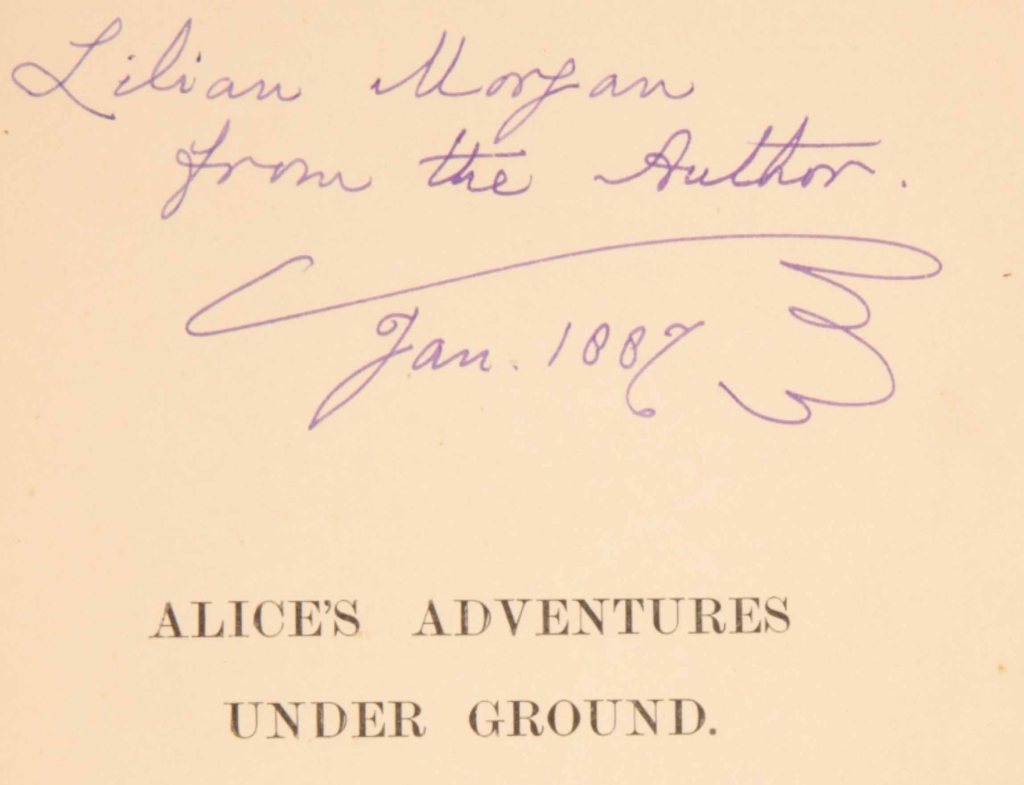 Lilian Morgan
from the Author.
Jan. 1887
ALICE'S ADVENTURES
UNDER GROUND.